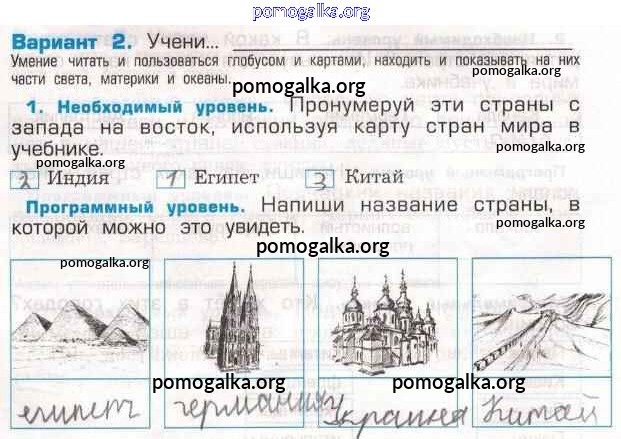 pomogalka.org
Вариант 2. Учени...
Умение читать и пользоваться глобусом и картами, находить и показывать на них
части света, материки и океаны.
pomogalka.org
1. Необходимый уровень. Пронумеруй эти страны с
запада на восток, используя карту стран мира в
учебнике.
pomogalka.org
pomogalka.org
2 Индия 1 Египет 3 Китай
pomogalka.org
pomogalka.org
Программный уровень. Напиши название страны, в
которой можно это увидеть.
pomogalka.org
pomogalka.org
pomogalka.org
pomogalka.org
pomogalka.org
египет германия Украина Китай
pomogalka.org